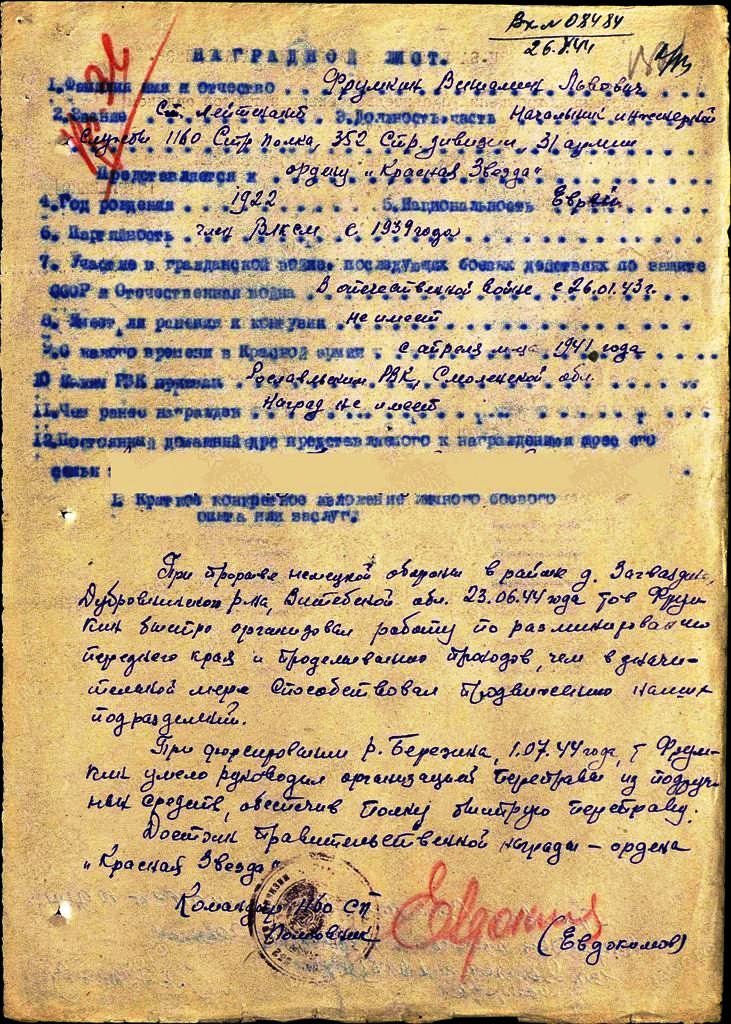 Вх № 08484
26.8.44
НАГРАДНОЙ ЛИСТ.
1. Фамилия имя и отчество Фрумкин Вениамин Львович
2. Звание Ст. Лейтенант 3. Должность, часть Начальник инженерной
службы 1160 Стр полка, 352 Стр. дивизии, 31 армии
Представляется к ордену „Красная Звезда“
4. Год рождения 1922 5. Национальность Еврей
6. Партийность член ВЛКСМ с 1939 года
7. Участие в гражданской войне, последующих боевых действиях по защите
СССР и Отечественная война В отечественной войне с 26.01.43 г.
8. Имеет ли ранения и контузии не имеет
9. С какого времени в Красной армии с апреля м-ца 1941 года
10 Каким РВК призван Рославльским РВК, Смоленской обл.
11. Чем ранее награжден Наград не имеет
12. Постоянный домашний адре представляемого к награждению
семьи:
1. Краткое конкретное изложение личного боевого
опыта или заслуг.
При прорыве немецкой обороны в районе д. Загваздино,
Дубровинского р-на, Витебской обл. 23.06.44 года тов Фрум-
кин быстро организовал работу по разминированию
переднего края и проделыванию проходов, чем в значи-
тельной мере способствовал продвижению наших
подразделений.
При форсировании р. Березина, 1.07.44 года, т Фрум-
кин умело руководил организацией переправы из подруч-
ных средств, обеспечив полку быструю переправу.
Достоин правительственной награды – ордена
„Красная Звезда“
Командир 1160 СП
Полковник Евдокимов (Евдокимов)